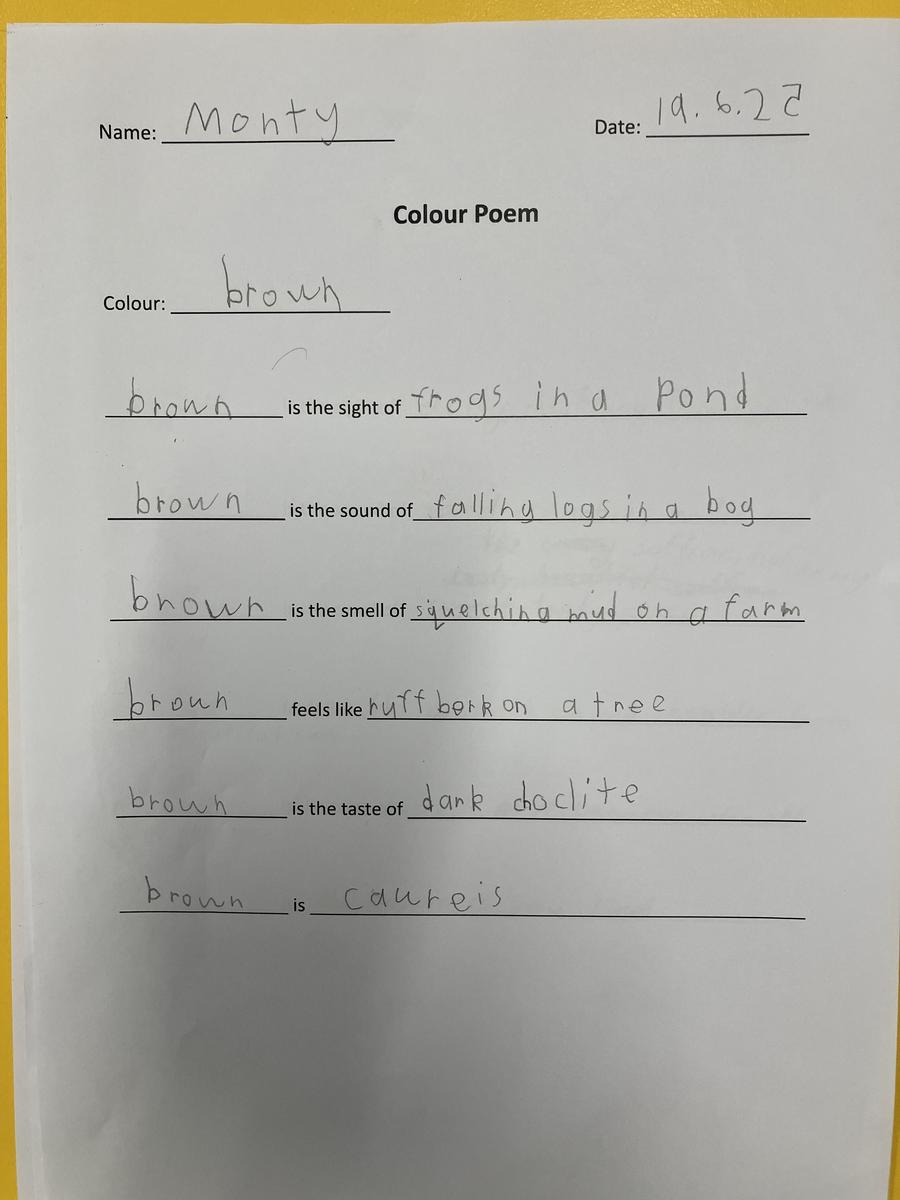 Name: Monty Date: 19.6.25
Colour Poem
Colour: brown
brown is the sight of frogs in a Pond
brown is the sound of falling logs in a bog
brown is the smell of squelching mud on a farm
brown feels like ruff bark on a tree
brown is the taste of dark choclite
brown is caureis